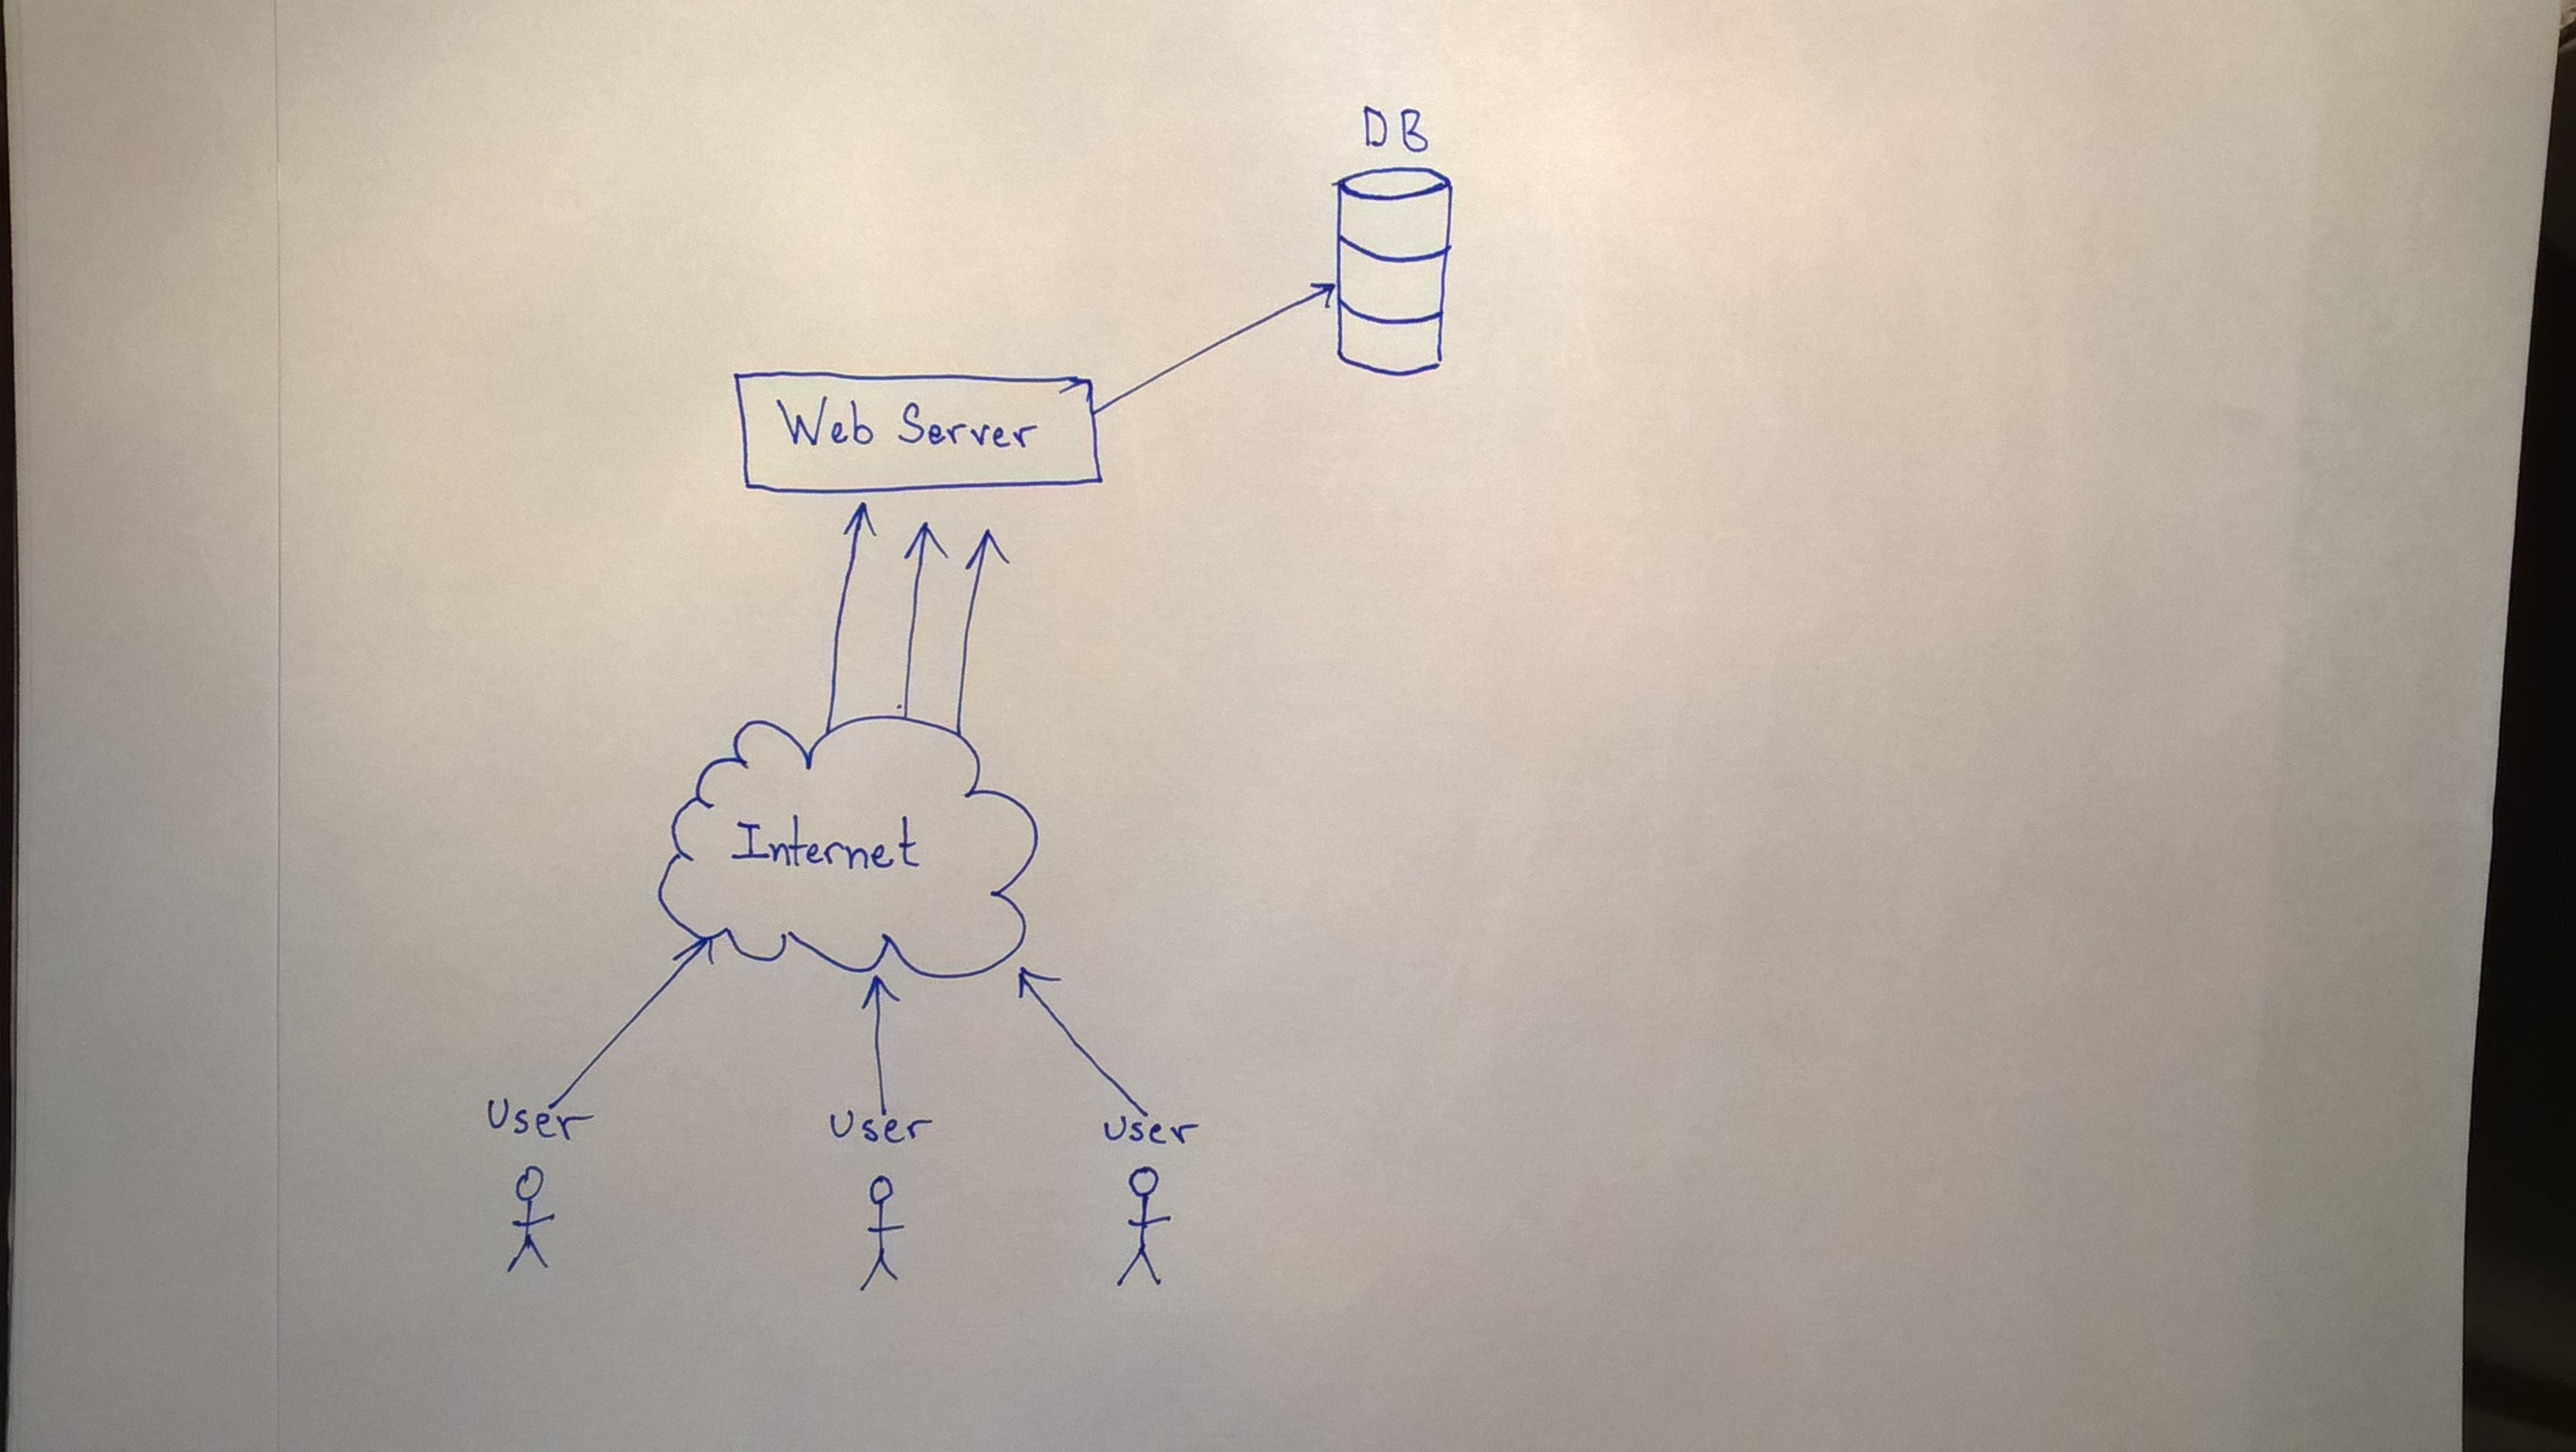 DB
Web Server
Internet
User
User
User